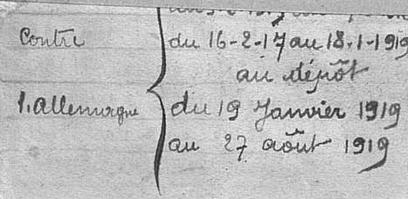 Contre
l'allemagne
du 16-2-17 au 18-1-1919
au dépôt
du 19 Janvier 1919
au 27 août 1919